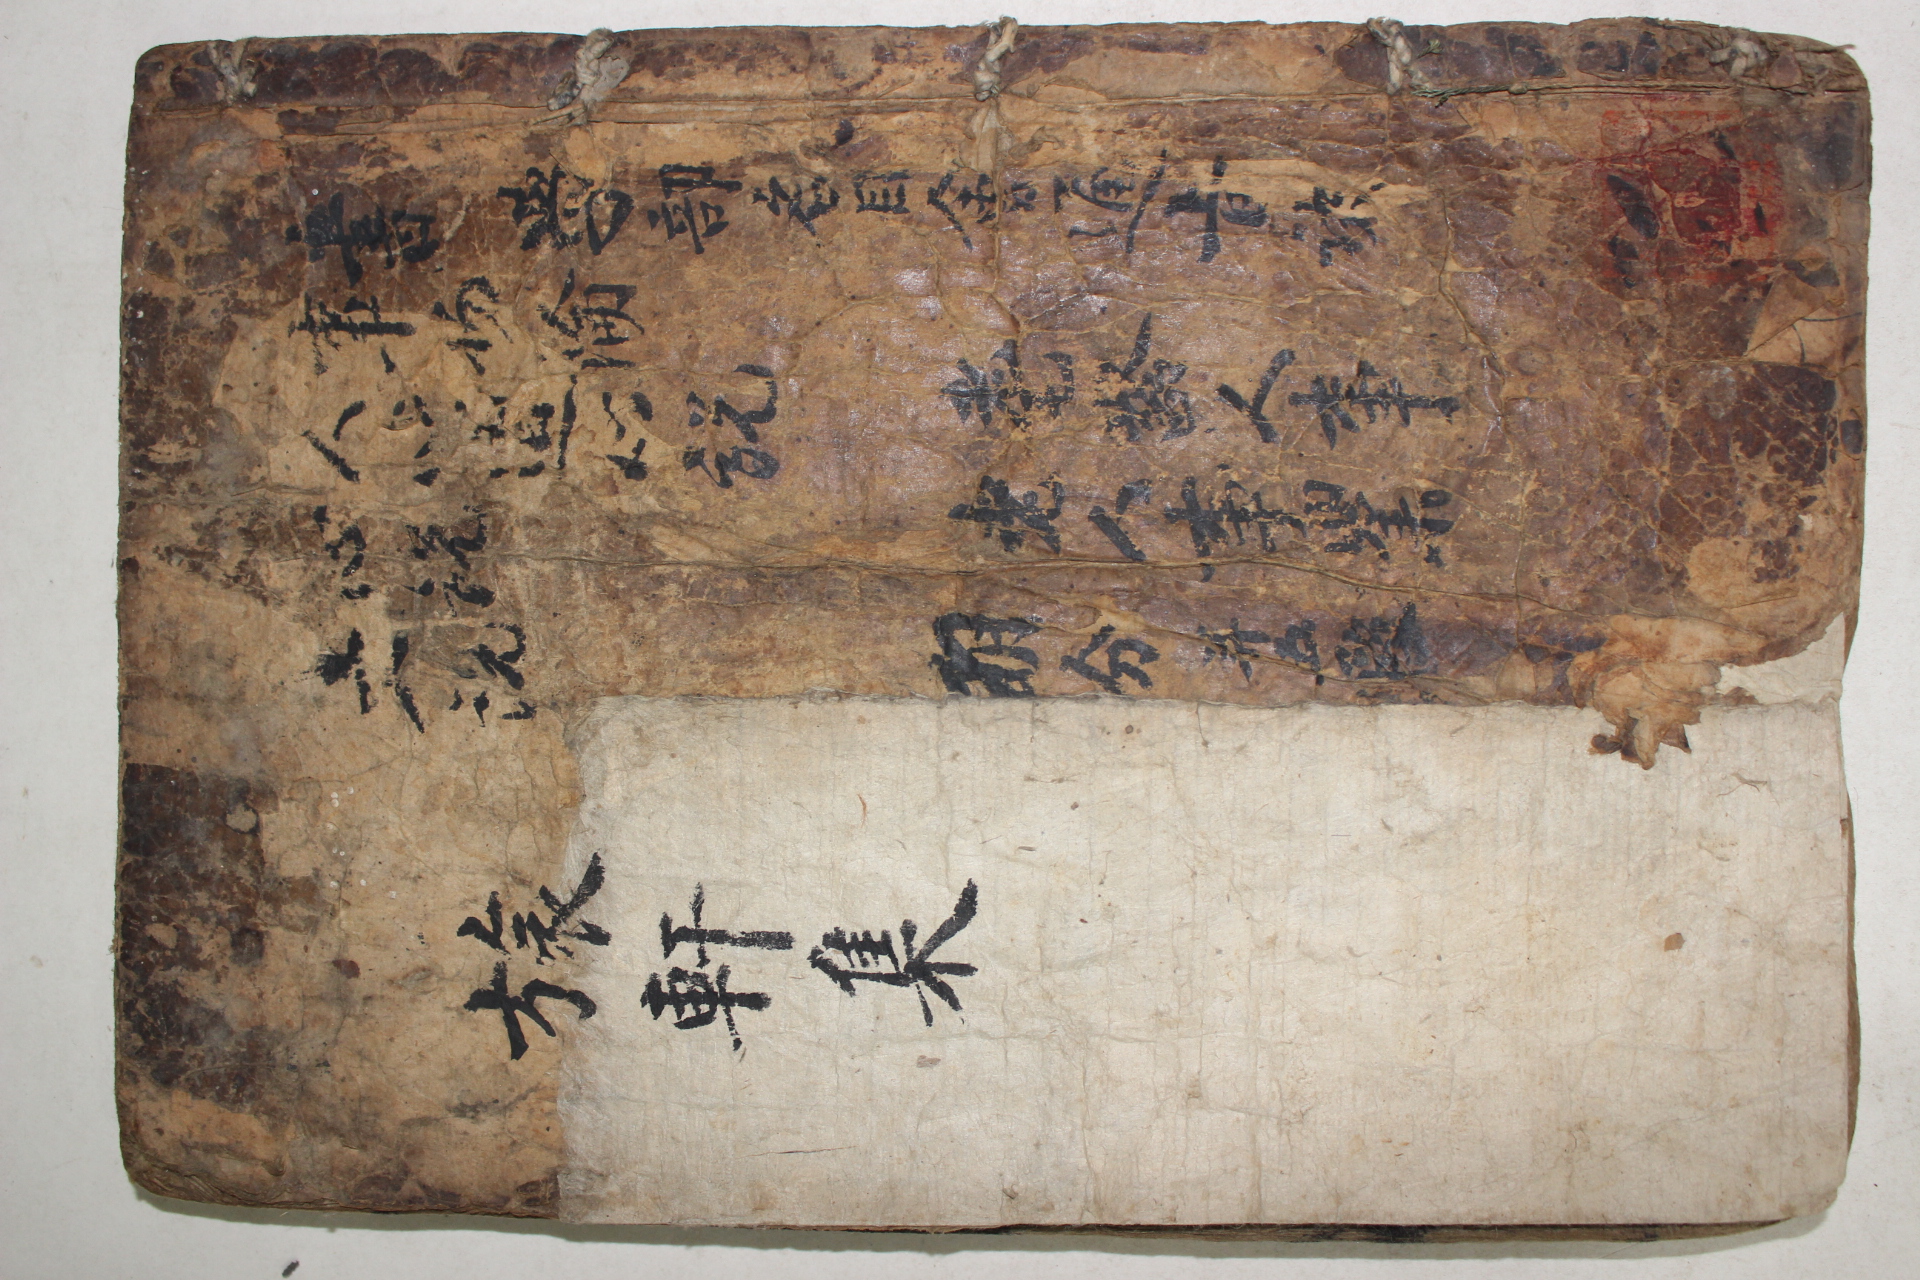 書 學部名目會通旨訣
事物論
人心道心說
心說
文說
耄齡人事
老人事業
明分 并五
旅軒集